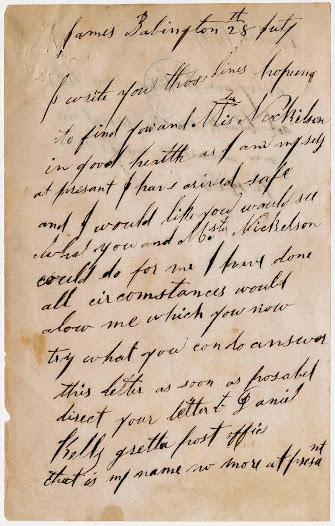 James Babington 28th July
I write you those lines hopeing
to find you and Mis Nickelson
in good health as I am my self
at presant I have arived safe
and I would like you would see
what you and Mstr Nickelson
could do for me I have done
all circomstances would
alow me which you now
try what you can do answer
this letter as soon as posabel
direct your letter to Daniel
Kelly gretta post offic
that is my name no more at presant